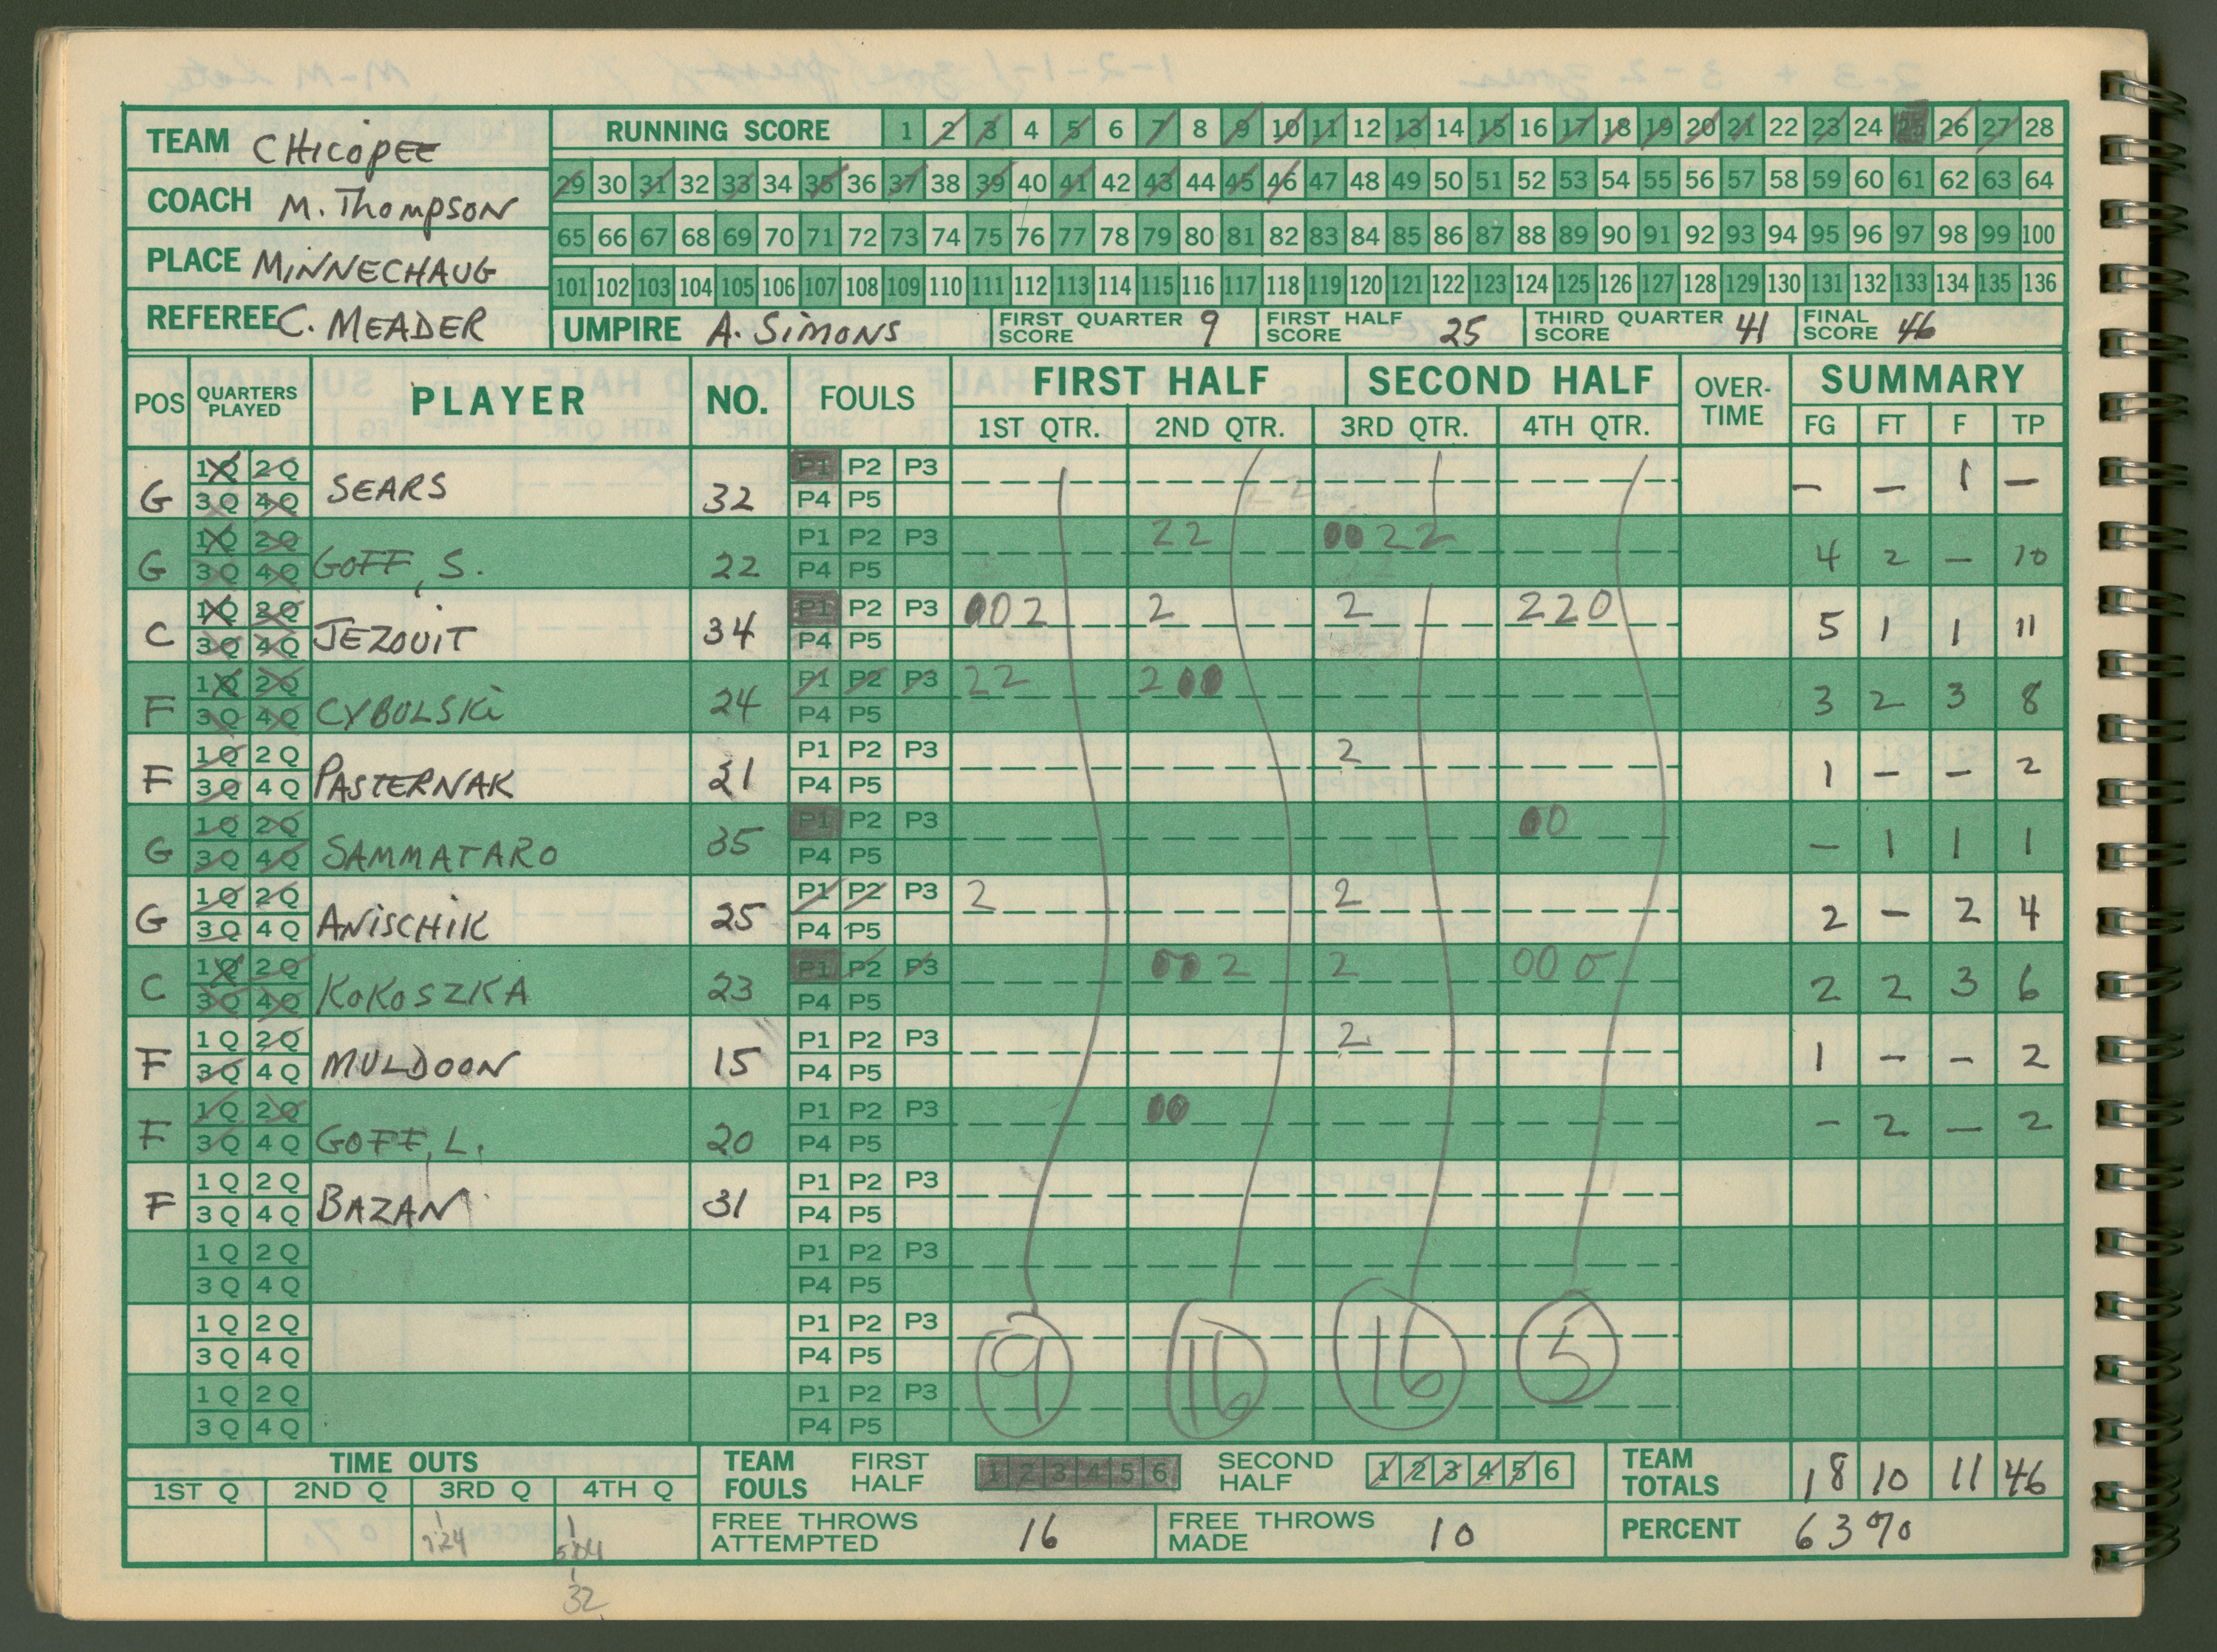 TEAM CHICOPEE
RUNNING SCORE 1 2 3 4 5 6 7 8 9 10 11 12 13 14 15 16 17 18 19 20 21 22 23 24 25 26 27 28
29 30 31 32 33 34 35 36 37 38 39 40 41 42 43 44 45 46 47 48 49 50 51 52 53 54 55 56 57 58 59 60 61 62 63 64
COACH M. THOMPSON
65 66 67 68 69 70 71 72 73 74 75 76 77 78 79 80 81 82 83 84 85 86 87 88 89 90 91 92 93 94 95 96 97 98 99 100
PLACE MINNECHAUG
101 102 103 104 105 106 107 108 109 110 111 112 113 114 115 116 117 118 119 120 121 122 123 124 125 126 127 128 129 130 131 132 133 134 135 136
REFEREE C. MEADER UMPIRE A. SIMONS FIRST QUARTER SCORE 9 FIRST HALF SCORE 25 THIRD QUARTER SCORE 41 FINAL SCORE 46
POS QUARTERS PLAYED PLAYER NO. FOULS FIRST HALF SECOND HALF OVER-TIME SUMMARY
1ST QTR. 2ND QTR. 3RD QTR. 4TH QTR. FG FT F TP
1Q 2Q P1 P2 P3
G 3Q 4Q SEARS 32 P4 P5 – – 1 –
1Q 2Q P1 P2 P3 22 0022
G 3Q 4Q GOFF, S. 22 P4 P5 4 2 – 10
1Q 2Q P1 P2 P3 002 2 2 220
C 3Q 4Q JEZOUIT 34 P4 P5 5 1 1 11
1Q 2Q P1 P2 P3 22 200
F 3Q 4Q CYBULSKI 24 P4 P5 3 2 3 8
1Q 2Q P1 P2 P3 2
F 3Q 4Q PASTERNAK 21 P4 P5 1 – – 2
1Q 2Q P1 P2 P3 00
G 3Q 4Q SAMMATARO 35 P4 P5 – 1 1 1
1Q 2Q P1 P2 P3 2 2
G 3Q 4Q ANISCHIK 25 P4 P5 2 – 2 4
1Q 2Q P1 P2 P3 002 2 000
C 3Q 4Q KOKOSZKA 23 P4 P5 2 2 3 6
1Q 2Q P1 P2 P3 2
F 3Q 4Q MULDOON 15 P4 P5 1 – – 2
1Q 2Q P1 P2 P3 00
F 3Q 4Q GOFF, L. 20 P4 P5 – 2 – 2
1Q 2Q P1 P2 P3
F 3Q 4Q BAZAN 31 P4 P5
1Q 2Q P1 P2 P3
3Q 4Q P4 P5
1Q 2Q P1 P2 P3
3Q 4Q P4 P5
9 16 16 5
1Q 2Q P1 P2 P3
3Q 4Q P4 P5
TIME OUTS TEAM FOULS FIRST HALF 1 2 3 4 5 6 SECOND HALF 1 2 3 4 5 6 TEAM TOTALS 18 10 11 46
1ST Q 2ND Q 3RD Q 4TH Q
FREE THROWS ATTEMPTED 16 FREE THROWS MADE 10 PERCENT 63%
32